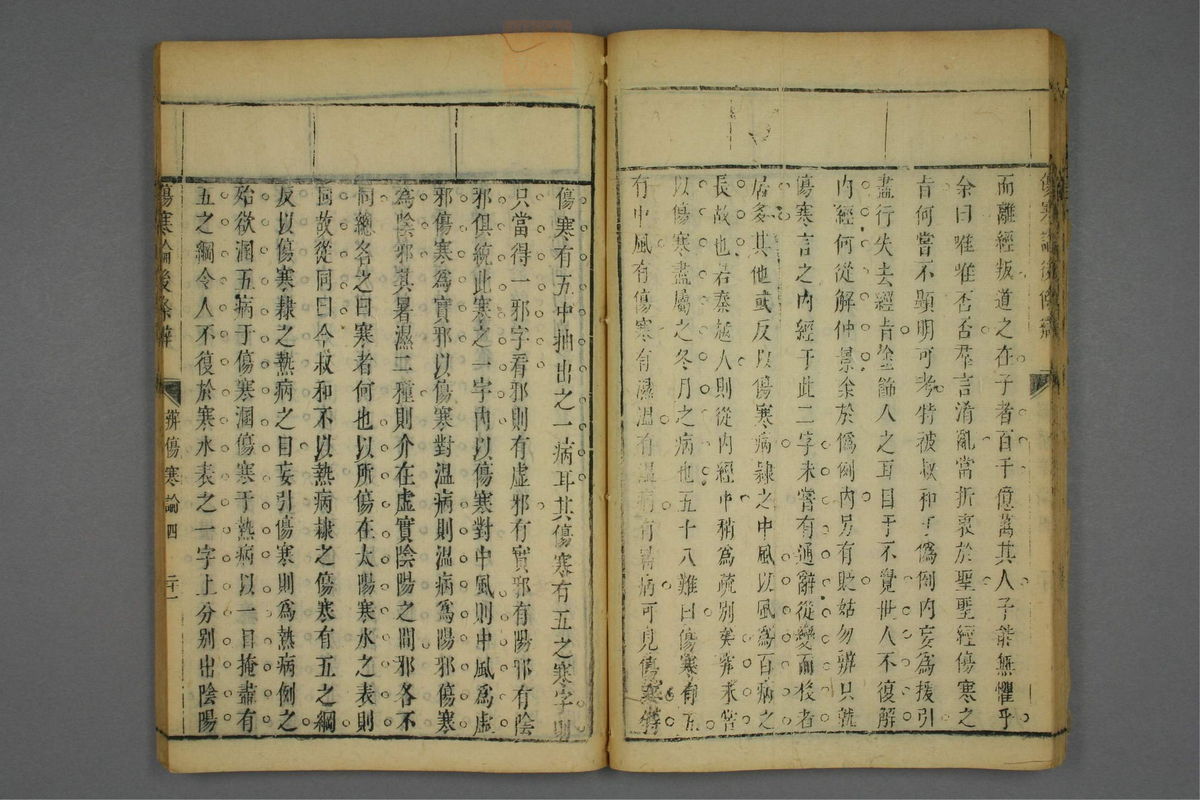 傷寒論後條辯
而離經叛道之在子者百千億萬其人子能無懼乎
余曰唯唯否否羣言淆亂當折衷於聖聖經傷寒之
旨何嘗不顯明可考特被叔和于僞例內妄爲援引
盡行失去經旨塗飾人之耳目于不覺世人不復解
內經何從解仲景余於僞例內另有貶姑勿辨只就
傷寒言之內經于此二字未嘗有通辭從變而後者
居多其他或反以傷寒病隷之中風以風爲百病之
長故也若秦越人則從內經中稍爲疏別矣亦未嘗
以傷寒盡屬之冬月之病也五十八難曰傷寒有五
有中風有傷寒有濕溫有溫病有熱病可見傷寒
傷寒有五中抽出之一病耳其傷寒有五之寒字則
只當得一邪字看邪則有虛邪有實邪有陽邪有陰
邪俱統此寒之一字內以傷寒對中風則中風爲虛
邪傷寒爲實邪以傷寒對溫病則溫病爲陽邪傷寒
爲陰邪其暑濕二種則介在虛實陰陽之間邪各不
同總名之曰寒者何也以所傷在太陽寒水之表則
同故從同曰今叔和不以熱病隷之傷寒有五之綱
反以傷寒隷之熱病之目妄引傷寒則爲熱病例之
殆欲溷五病于傷寒溷傷寒于熱病以一目掩盡有
五之綱令人不復於寒水表之一字上分別出陰陽
傷寒論後條辯
辨傷寒論四
二十一